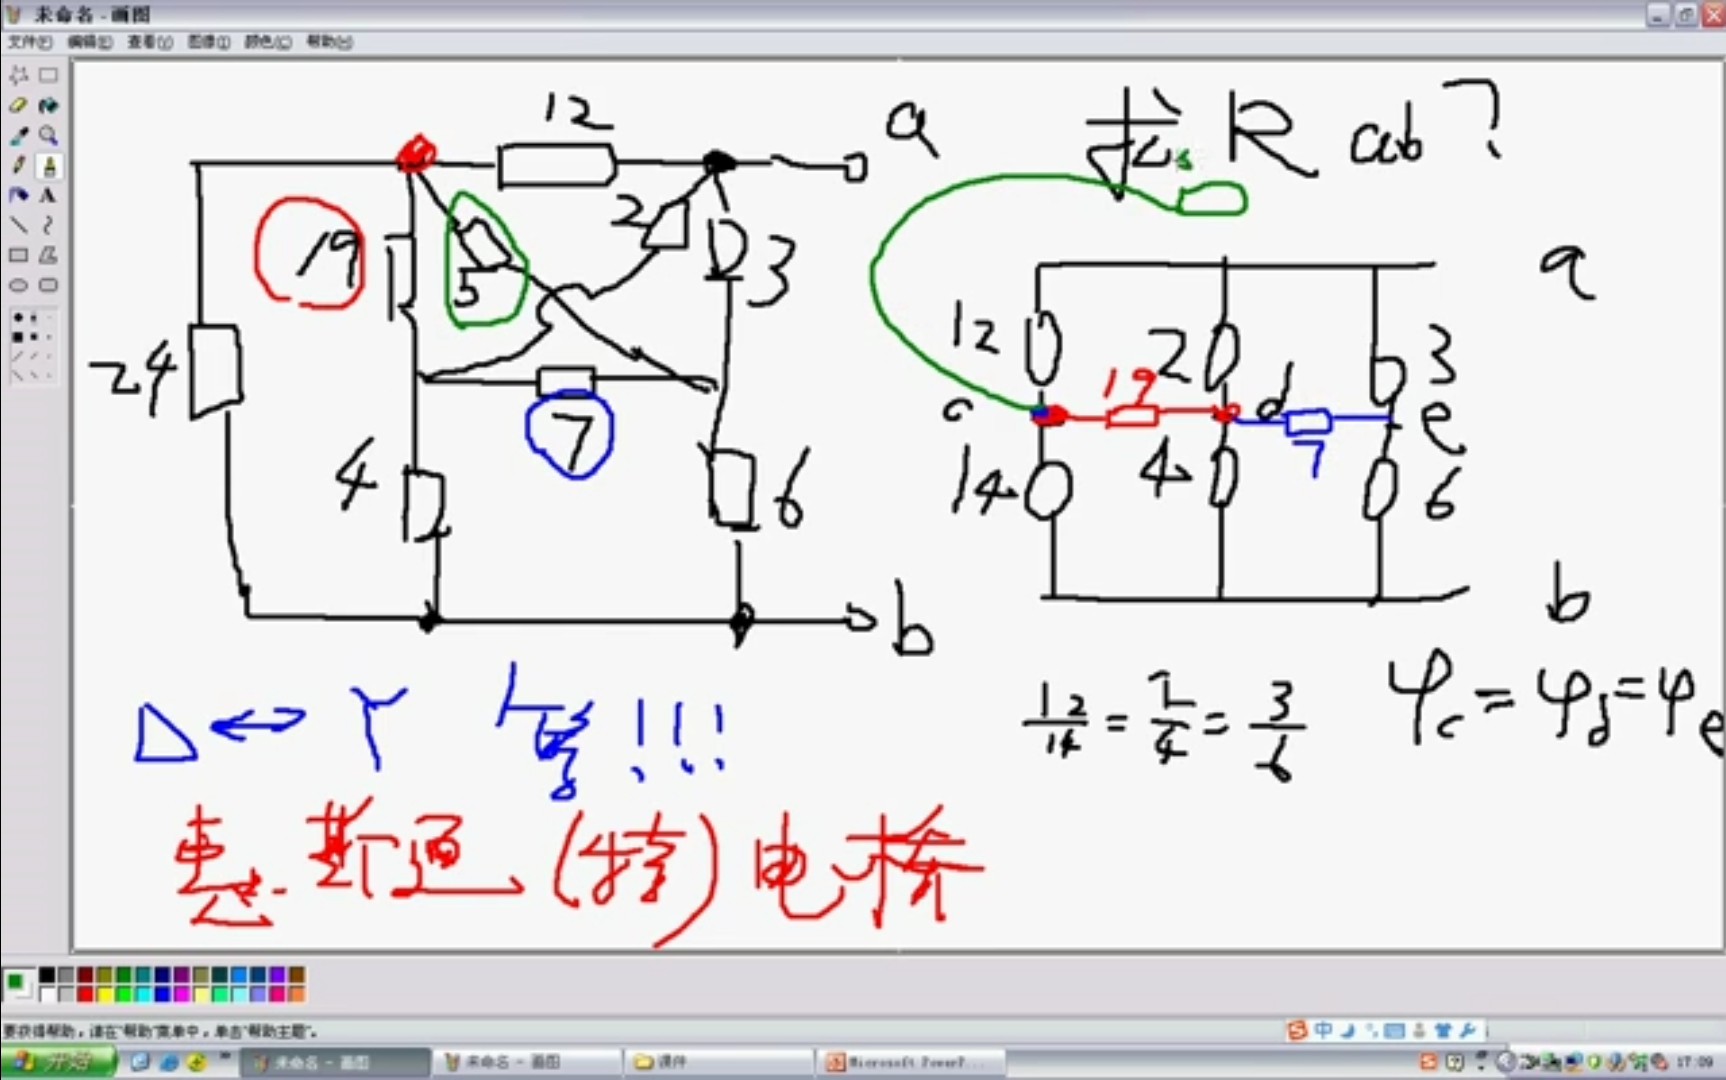 未命名 - 画图
文件(F) 编辑(E) 查看(V) 图像(I) 颜色(C) 帮助(H)
12 a 求 R ab ?
2
19 5 3
a
12 2 3
19
24
c d e
7
7
4 14 4 6
6
b
b
12/14 = 2/4 = 3/6 φc = φd = φe
Δ ↔ Y !!!
惠斯通(特)电桥
要获得帮助，请在“帮助”菜单中，单击“帮助主题”。
中
开始 未命名 - 画图 未命名 - 画图 课件 Microsoft PowerP... 17:09